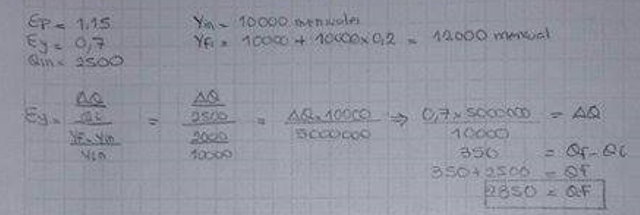 Ep = 1,15 Yin = 10000 mensuales
Ey = 0,7 YFi = 10000 + 10000x0,2 = 12000 mensual
Qin = 2500
Ey = ΔQ/Qi / YF-Yin/Yin = ΔQ/2500 / 2000/10000 = ΔQ·10000/5000000 ⇒ 0,7x5000000/10000 = ΔQ
350 = Qf-Qi
350+2500 = Qf
2850 = QF